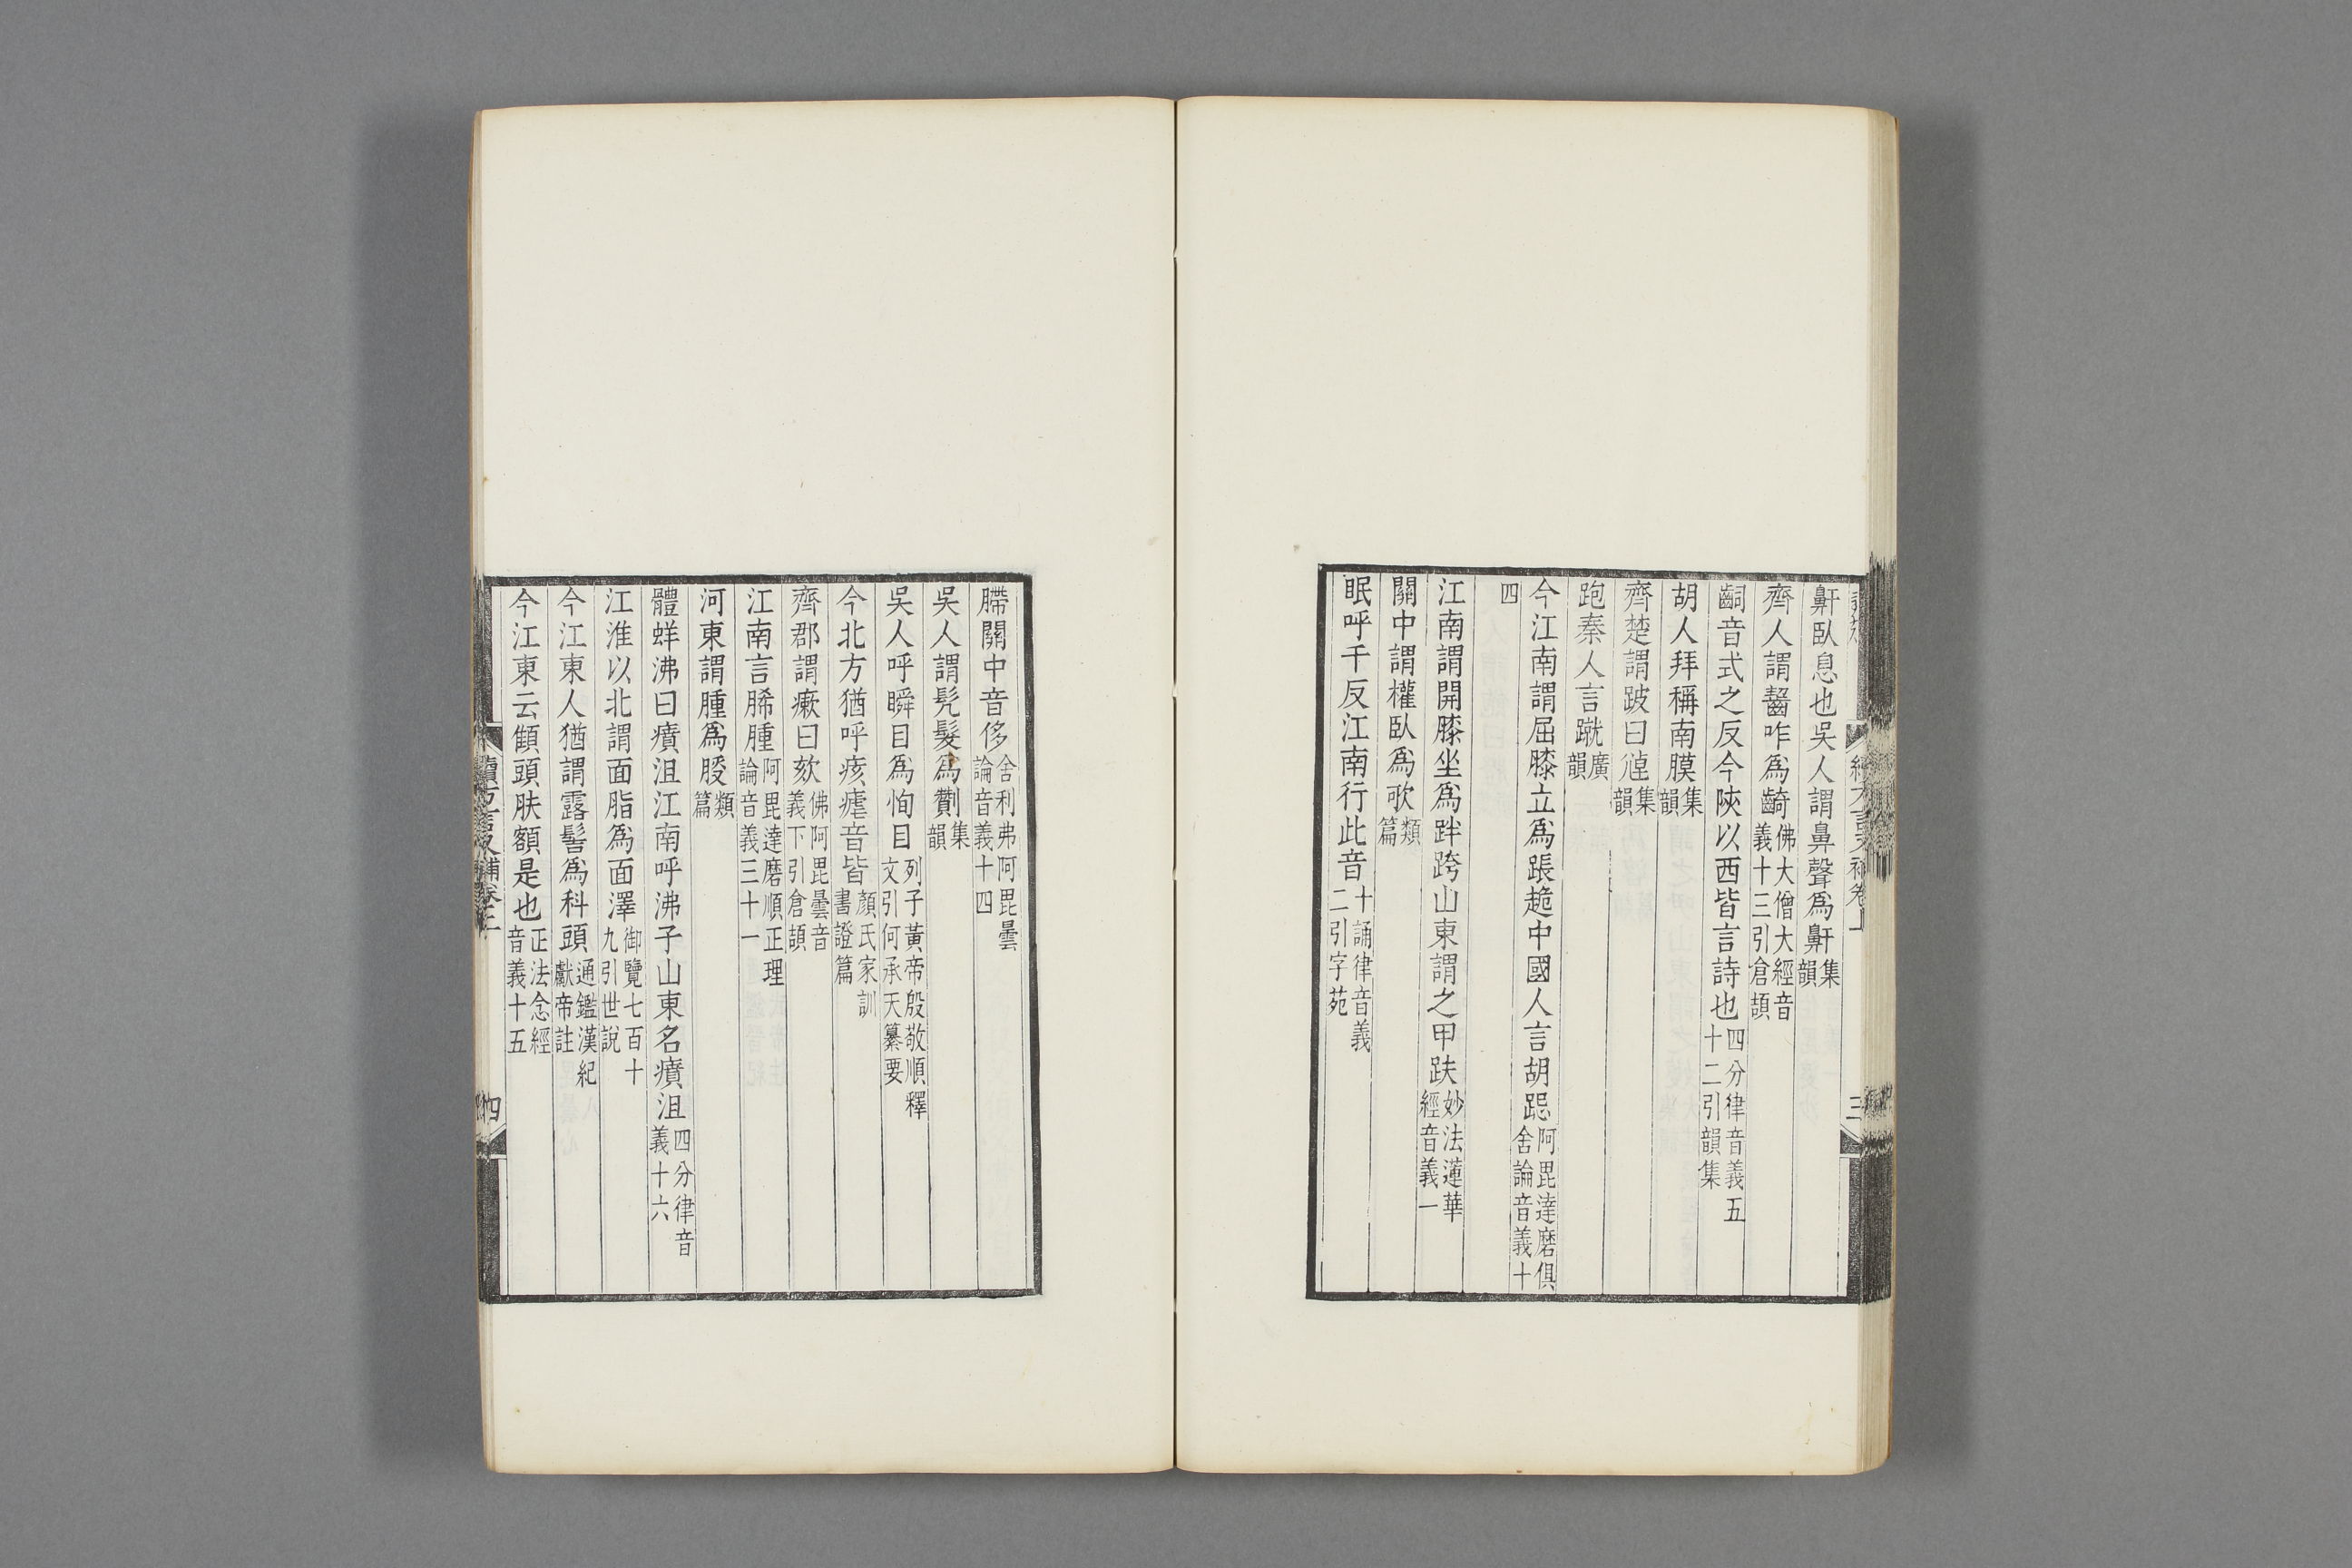 鼾臥息也吳人謂鼻聲爲鼾集韻
齊人謂齧咋爲齮佛大僧大經音義十三引倉頡
齝音式之反今陝以西皆言詩也四分律音義五十二引韻集
胡人拜稱南膜集韻
齊楚謂跛曰𨓈集韻
跑秦人言蹴廣韻
今江南謂屈膝立爲跟䠆中國人言胡跽阿毘達磨俱舍論音義十
四
江南謂開膝坐爲跘跨山東謂之甲趺妙法蓮華經音義一
關中謂權臥爲歌類篇
眠呼千反江南行此音十誦律音義二引字苑
膪關中音侈舍利弗阿毘曇論音義十四
吳人謂髡髮爲䰖集韻
吳人呼瞬目爲恂目列子黃帝殷敬順釋文引何承天纂要
今北方猶呼痎瘧音皆顏氏家訓書證篇
齊郡謂瘶曰欬佛阿毘曇音義下引倉頡
江南言脪腫阿毘達磨順正理論音義三十一
河東謂腫爲㱼類篇
體蛘沸曰癀沮江南呼沸子山東名癀沮四分律音義十六
江淮以北謂面脂爲面澤御覽七百十九引世說
今江東人猶謂露髻爲科頭通鑑漢紀獻帝註
今江東云䫌頭肤額是也正法念經音義十五
續方言又補卷上
三
四